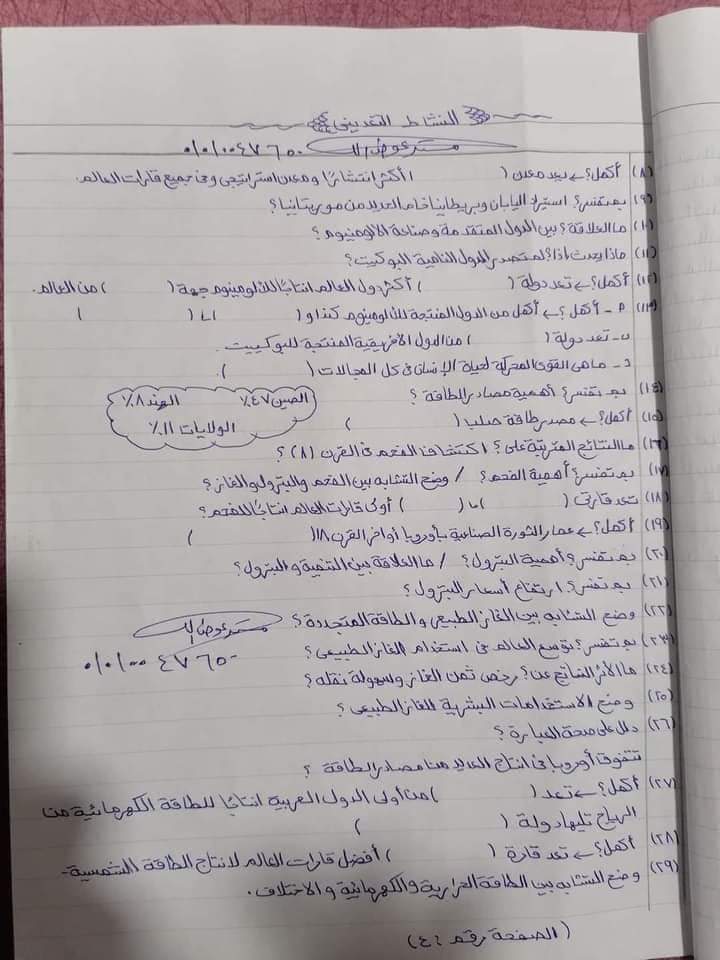 النشاط التعديني
مستر عوض الله ٠١٠١٠٠٤٧٦٥٠
(٨) أكمل؟ ← يعد معدن ( ) أكثر انتشارًا ومعدن استراتيجى وفى جميع قارات العالم.
(٩) بم تفسر؟ استيراد اليابان وبريطانيا خام الحديد من موريتانيا؟
(١٠) ما العلاقة؟ بين الدول المتقدمة وصناعة الألومنيوم؟
(١١) ماذا يحدث اذا؟ لم تصدر الدول النامية البوكيت؟
(١٢) أكمل؟ ← تعد دولة ( ) أكثر دول العالم انتاجًا للألومنيوم جهة ( ) من العالم.
(١٣) أ - أكمل؟ ← أكمل من الدول المنتجة للألومنيوم كندا و ( ) ( )
ب - تعد دولة ( ) من الدول الافريقية المنتجة للبوكييت.
د - ما هى القوى المحركة لحياة الإنسان فى كل المجالات ( ).
(١٤) بم تفسر؟ أهمية مصادر الطاقة؟
الصين ٤٧٪ الهند ٨٪
الولايات ١١٪
(١٥) أكمل؟ ← مصدر طاقة صلب ( )
(١٦) ما النتائج المترتبة على؟ اكتشاف الفحم فى القرن (١٨)؟
(١٧) بم تفسر؟ أهمية الفحم؟ / وضح التشابه بين الفحم والبترول والغاز؟
(١٨) تعد قارتى ( ) ، ( ) أولى قارات العالم انتاجًا للفحم؟
(١٩) أكمل؟ ← عمار الثورة الصناعية بأوروبا أواخر القرن ١٨ ( )
(٢٠) بم تفسر؟ أهمية البترول؟ / ما العلاقة بين التنمية والبترول؟
(٢١) بم تفسر؟ ارتفاع أسعار البترول؟
(٢٢) وضح التشابه بين الغاز الطبيعى والطاقة المتجددة؟
مستر عوض الله
(٢٣) بم تفسر؟ توسع العالم فى استخدام الغاز الطبيعى؟
٠١٠١٠٠٤٧٦٥٠
(٢٤) ما الأثر الناتج عن؟ رخص ثمن الغاز وسهولة نقله؟
(٢٥) وضح الاستخدامات البشرية للغاز الطبيعى؟
(٢٦) دلل على صحة العبارة؟
تتفوق أوروبا فى انتاج العديد من مصادر الطاقة؟
(٢٧) أكمل؟ ← تعد ( ) من أولى الدول العربية انتاجًا للطاقة الكهرمائية من
الرياح تليها دولة ( )
(٢٨) أكمل؟ ← تعد قارة ( ) أفضل قارات العالم لانتاج الطاقة الشمسية.
(٢٩) وضح التشابه بين الطاقة الحرارية والكهرمائية والاختلاف.
(الصفحة رقم ٤٠)